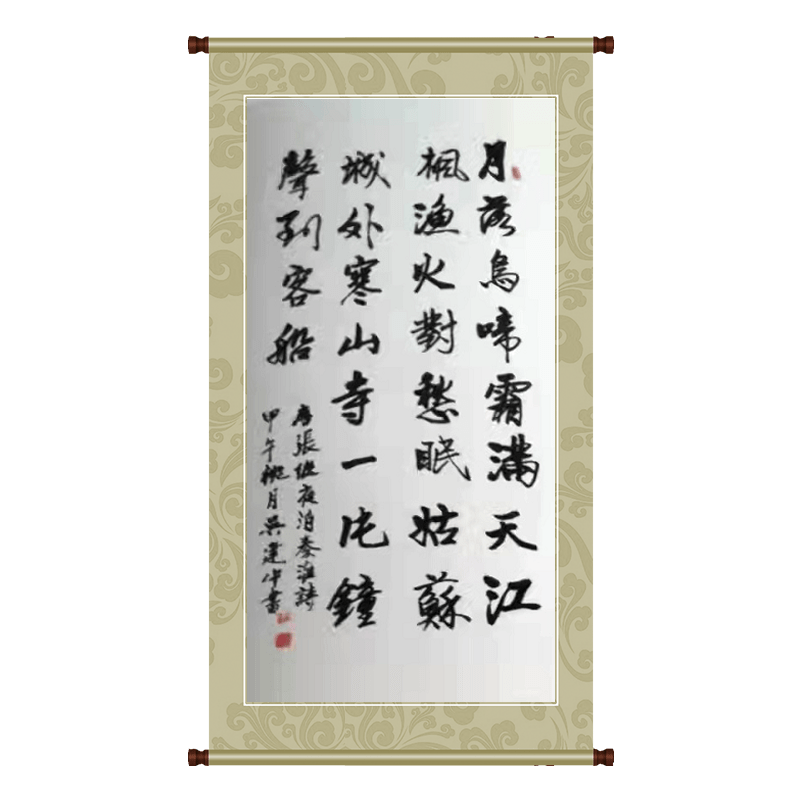 月落烏啼霜滿天江
楓漁火對愁眠姑蘇
城外寒山寺一片鐘
聲到客船
唐張繼夜泊秦淮詩
甲午桃月吳建中書